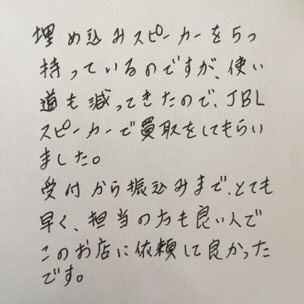 埋め込みスピーカーを5つ
持っているのですが、使い
道も減ってきたので、JBL
スピーカーで買取をしてもらい
ました。
受付から振込みまで、とても
早く、担当の方も良い人で
このお店に依頼して良かった
です。